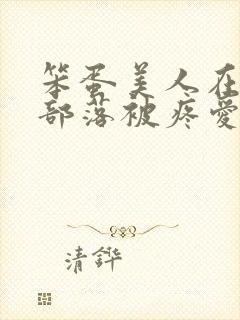 笨蛋美人在
部落被疼爱
清鏵